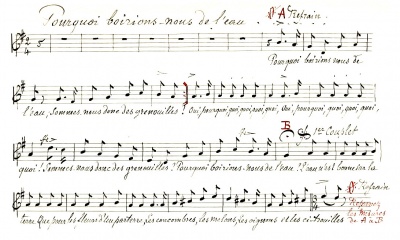 Pourquoi boirions-nous de l'eau.
Refrain
A
5
2
4
5
Pourquoi boirions nous de
l'eau, Sommes nous donc des grenouilles? Oui, pourquoi, quoi, quoi, quoi, quoi, Oui, pourquoi, quoi, quoi, quoi,
B
1er Couplet
quoi? Sommes-nous donc des grenouilles? Pourquoi boirions-nous de l'eau? L'eau n'est bonne sur la
Refrain
terre Que pour les fleurs d'un parterre, Les concombres, les melons, Les oignons et les citrouilles
3
Reprenez
les mesures
de A à B